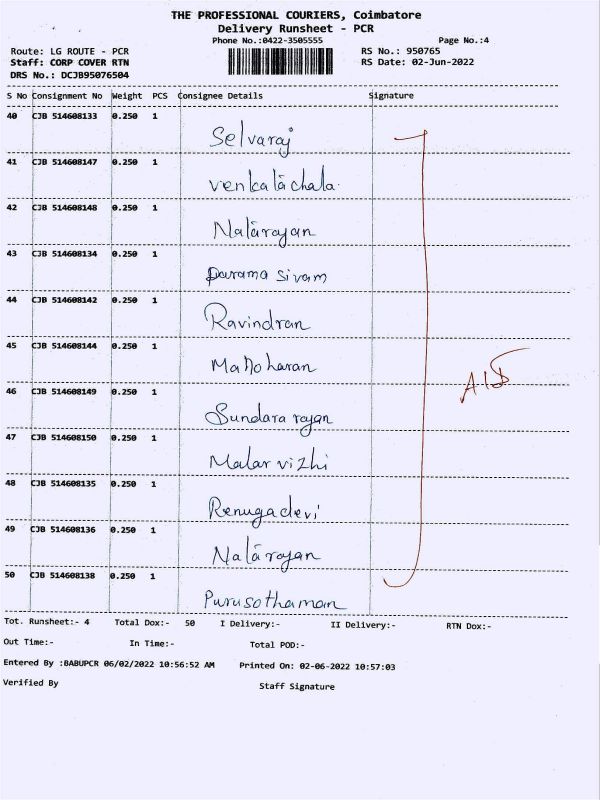 THE PROFESSIONAL COURIERS, Coimbatore
Delivery Runsheet - PCR
Phone No.:0422-3505555 Page No.:4
Route: LG ROUTE - PCR RS No.: 950765
Staff: CORP COVER RTN RS Date: 02-Jun-2022
DRS No.: DCJB95076504
S No Consignment No Weight PCS Consignee Details Signature
40 CJB 514608133 0.250 1
Selvaraj
41 CJB 514608147 0.250 1
Venkatachala.
42 CJB 514608148 0.250 1
Natarajan
43 CJB 514608134 0.250 1
Parama Sivam
44 CJB 514608142 0.250 1
Ravindran
45 CJB 514608144 0.250 1
Manoharan
46 CJB 514608149 0.250 1
Sundara rajan
47 CJB 514608150 0.250 1
Malar vizhi
48 CJB 514608135 0.250 1
Renugadevi
49 CJB 514608136 0.250 1
Natarajan
50 CJB 514608138 0.250 1
Purusothaman
Tot. Runsheet:- 4 Total Dox:- 50 I Delivery:- II Delivery:- RTN Dox:-
Out Time:- In Time:- Total POD:-
Entered By :BABUPCR 06/02/2022 10:56:52 AM Printed On: 02-06-2022 10:57:03
Verified By Staff Signature